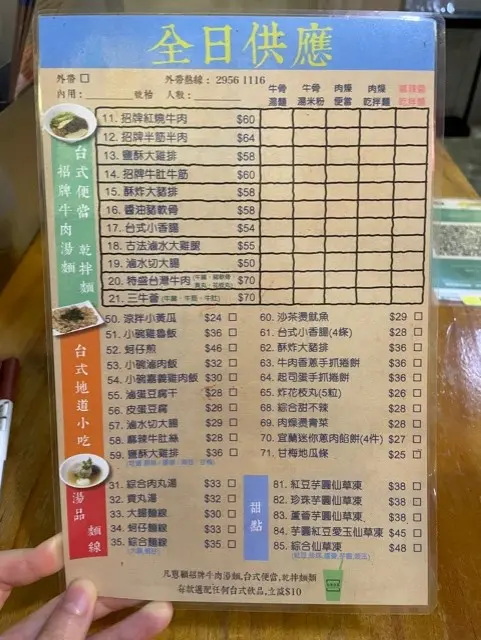 全日供應
外帶 □ 外帶熱線: 2956 1116
內用: ________ 號檯 人數: ________
牛骨湯麵 牛骨湯米粉 肉燥便當 肉燥乾拌麵 麻辣醬乾拌麵
台式便當 乾拌麵
招牌牛肉湯麵
11. 招牌紅燒牛肉 $60
12. 招牌半筋半肉 $64
13. 鹽酥大雞排 $58
14. 招牌牛肚牛筋 $60
15. 酥炸大豬排 $58
16. 醬油豬軟骨 $58
17. 台式小香腸 $54
18. 古法滷水大雞腿 $55
19. 滷水切大腸 $50
20. 特盛台灣牛肉 $70
21. 三牛薈 (牛腩、牛筋、牛肚) $70
台式地道小吃
50. 涼拌小黃瓜 $24 □
51. 小碗雞魯飯 $36 □
52. 蚵仔煎 $46 □
53. 小碗滷肉飯 $32 □
54. 小碗嘉義雞肉飯 $30 □
55. 滷蛋豆腐干 $28 □
56. 皮蛋豆腐 $28 □
57. 滷水切大腸 $29 □
58. 麻辣牛肚絲 $28 □
59. 鹽酥大雞排 $36 □
60. 沙茶燙魷魚 $29 □
61. 台式小香腸(4條) $28 □
62. 酥炸大豬排 $36 □
63. 牛肉香蔥手抓捲餅 $36 □
64. 起司蛋手抓捲餅 $36 □
65. 炸花枝丸(5粒) $26 □
68. 綜合甜不辣 $28 □
69. 肉燥燙青菜 $28 □
70. 宜蘭迷你蔥肉餡餅(4件) $27 □
71. 甘梅地瓜條 $25 □
湯品 麵線
31. 綜合肉丸湯 $33 □
32. 貢丸湯 $32 □
33. 大腸麵線 $30 □
34. 蚵仔麵線 $33 □
35. 綜合麵線 $35 □
甜點
81. 紅豆芋圓仙草凍 $38 □
82. 珍珠芋圓仙草凍 $38 □
83. 蘆薈芋圓仙草凍 $38 □
84. 芋圓紅豆愛玉仙草凍 $45 □
85. 綜合仙草凍 $48 □
凡惠顧招牌牛肉湯麵,台式便當,乾拌麵類
每款選配任何台式飲品,立減$10